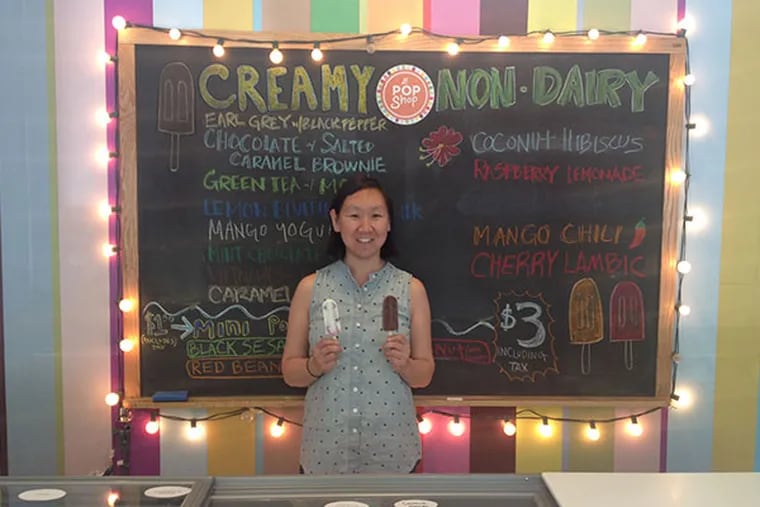 CREAMY
the
POP
Shop
NON-DAIRY
EARL GREY w/BLACK PEPPER
CHOCOLATE + SALTED
CARAMEL BROWNIE
GREEN TEA
LEMON
MANGO YOGU
MINT CHOCOLATE
CARAMEL
COCONUT HIBISCUS
RASPBERRY LEMONADE
MANGO CHILI
CHERRY LAMBIC
$1
(INCLUDES
TAX
MINI
BLACK SESA
RED BEAN
$3
INCLUDING
TAX